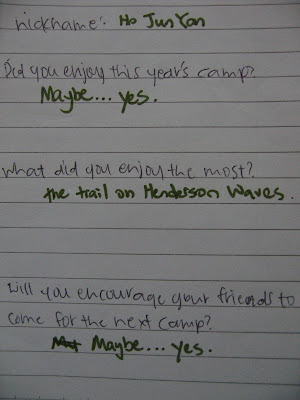 nickname: Ho Jun Yan
Did you enjoy this year's camp?
Maybe... yes.
what did you enjoy the most?
the trail on Henderson Waves.
Will you encourage your friends to
come for the next camp?
Maybe... yes.